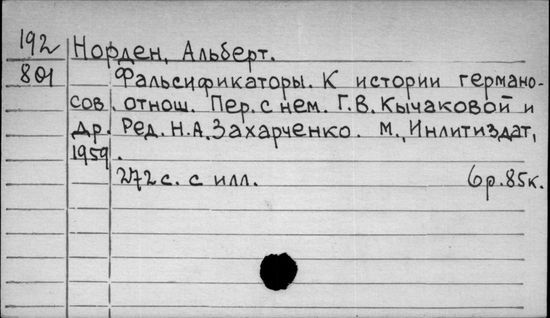 192 Норден, Альберт.
801 Фальсификаторы. К истории германо-
сов. отнош. Пер. с нем. Г.В. Кычаковой и
др. Ред. Н.А. Захарченко. М., Инлитиздат,
1959.
272 с. с илл. 6р.85к.